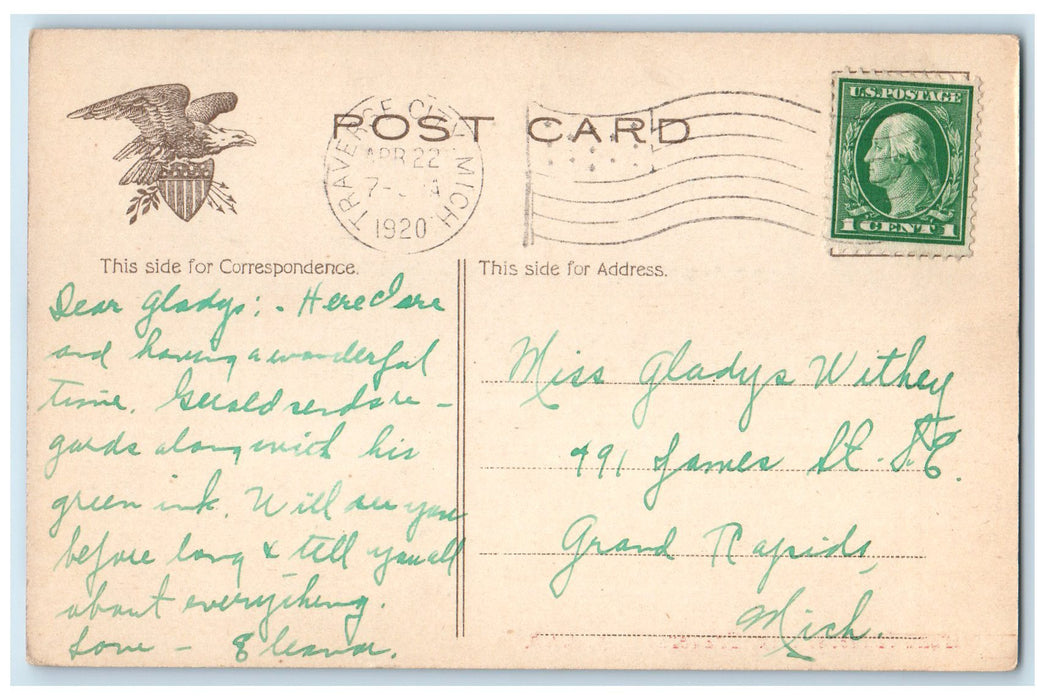 POST CARD
TRAVERSE CITY MICH.
APR 22
7-
1920
U.S. POSTAGE
1 CENT 1
This side for Correspondence.
This side for Address.
Dear Gladys:- Here I are
and having a wonderful
time. Gerald sends re-
gards along with his
green ink. Will see you
before long & tell you all
about everything.
Love - Eleanor.
Miss Gladys Withey
491 James St. S.E.
Grand Rapids,
Mich.